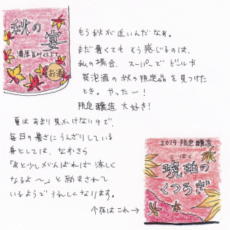 秋の宴
濃厚な味わい
お酒
もう秋が近いんだなぁ。
まだ暑くてももう感じるのは、
私の場合、スーパーでビールや
発泡酒の秋の限定品を見つけた
とき。やったー!
限定醸造 大好き!
夏はあまり見かけないので、
毎日の暑さにうんざりしている
身としては、なおさら
「あと少しがんばれば涼しく
なるよ〜」と励まされて
いるようでうれしくなります。
今夜はこれ→
2019 限定醸造
琥珀の
くつろぎ